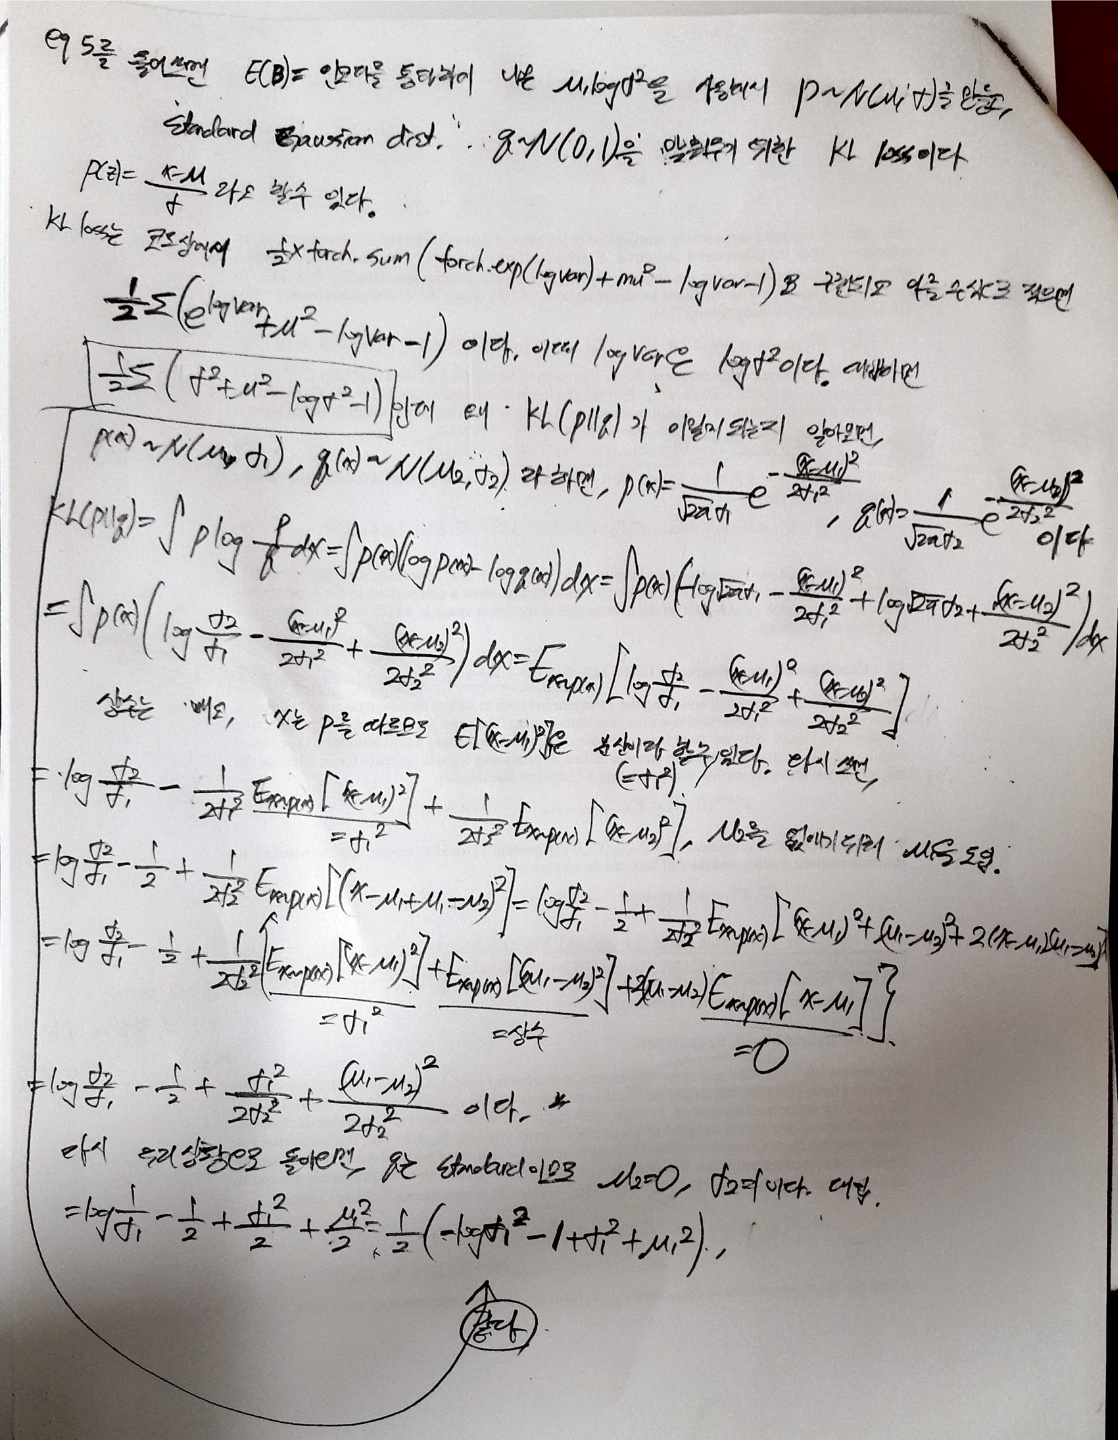 eq 5를 풀어쓰면 E(B)= 인코더를 통과하여 나온 μ, logσ²을 사용해서 p~N(μ, σ)을 만들고,
Standard Gaussian dist. q~N(0,1)을 맞춰주기 위한 KL loss이다
p(z)= (x-μ)/σ 라고 할수 있다.
KL loss는 코드상에서 ½×torch.sum(torch.exp(logvar)+mu²-logvar-1)로 구현되고 이를 수식으로 적으면
½Σ(e^logvar+μ²-logvar-1) 이다. 이때 logvar은 logσ²이다. 대입하면
½Σ(σ²+μ²-logσ²-1) 인데 왜 KL(p||q)가 이렇게 되는지 알아보면,
p(x)~N(μ₁, σ₁), q(x)~N(μ₂, σ₂) 라 하면, p(x)= 1/(√2π σ₁) e^(-(x-μ₁)²/2σ₁²), q(x)= 1/(√2π σ₂) e^(-(x-μ₂)²/2σ₂²) 이다
KL(p||q)= ∫ p log p/q dx = ∫p(x)(log p(x) - log q(x))dx = ∫p(x)(-log√2π σ₁ - (x-μ₁)²/2σ₁² + log√2π σ₂ + (x-μ₂)²/2σ₂²)dx
= ∫p(x)(log σ₂/σ₁ - (x-μ₁)²/2σ₁² + (x-μ₂)²/2σ₂²)dx = E_x~p(x)[log σ₂/σ₁ - (x-μ₁)²/2σ₁² + (x-μ₂)²/2σ₂²]
상수는 빼고, x는 p를 따르므로 E[(x-μ₁)²]은 분산이라 할수 있다. 다시 쓰면,
(=σ₁²)
= log σ₂/σ₁ - 1/2σ₁² E_x~p(x)[(x-μ₁)²] + 1/2σ₂² E_x~p(x)[(x-μ₂)²], μ₂을 없애기위해 μ₁을 도입.
=σ₁²
= log σ₂/σ₁ - ½ + 1/2σ₂² E_x~p(x)[(x-μ₁+μ₁-μ₂)²] = log σ₂/σ₁ - ½ + 1/2σ₂² E_x~p(x)[(x-μ₁)²+(μ₁-μ₂)²+2(x-μ₁)(μ₁-μ₂)]
= log σ₂/σ₁ - ½ + 1/2σ₂² {E_x~p(x)[(x-μ₁)²]+E_x~p(x)[(μ₁-μ₂)²]+2(μ₁-μ₂)E_x~p(x)[x-μ₁]}
=σ₁² =상수 =0
= log σ₂/σ₁ - ½ + σ₁²/2σ₂² + (μ₁-μ₂)²/2σ₂² 이다. *
다시 우리상황으로 돌아오면, q는 standard이므로 μ₂=0, σ₂=1이다. 대입.
= log 1/σ₁ - ½ + σ₁²/2 + μ₁²/2 = ½(-logσ₁²-1+σ₁²+μ₁²).
같다